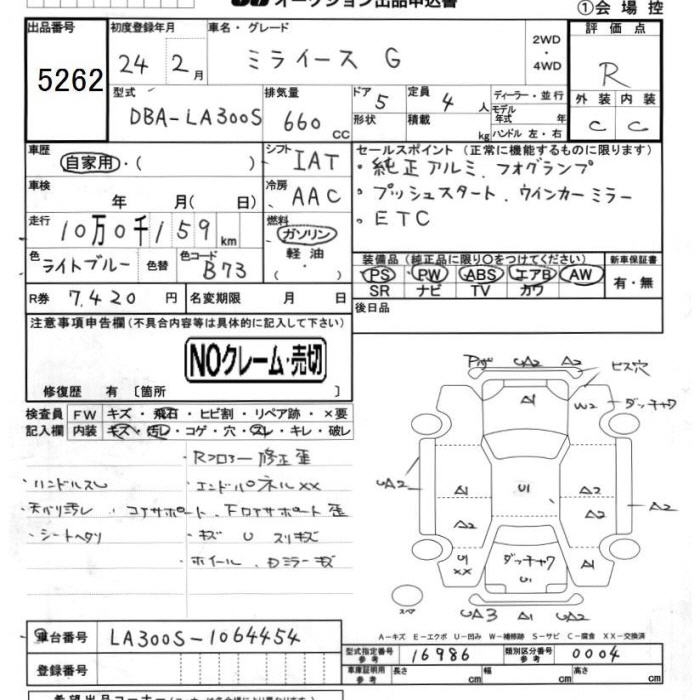 オークション出品申込書
①会場控
出品番号 5262
初度登録年月 24 2月
車名・グレード ミライース G
2WD・4WD
評価点 R
型式 DBA-LA300S
排気量 660 CC
ドア 5
形状
定員 4 人
積載 kg
ディーラー・並行
モデル年式 年式
ハンドル 左・右
外装 内装
C C
車歴 自家用・( )
シフト IAT
セールスポイント (正常に機能するものに限ります)
・純正アルミ、フォグランプ
・プッシュスタート、ウインカーミラー
・ETC
車検 年 月( 日)
冷房 AAC
走行 10万0千159 km
燃料 ガソリン 軽油 ・( )
色 ライトブルー 色替
色コード B73
装備品 (純正品に限り○をつけてください)
PS PW ABS エアB AW
SR ナビ TV カワ
新車保証書 有・無
R券 7,420 円
名変期限 月 日
後日品
注意事項申告欄 (不具合内容等は具体的に記入して下さい)
NOクレーム・売切
修復歴 有 〔箇所 〕
検査員 FW キズ・飛石・ヒビ割・リペア跡・×要
記入欄 内装 キズ・汚レ・コゲ・穴・スレ・キレ・破レ
・ハンドルスレ
・シートヘタリ
・エンドパネルXX
・キズ U スリキズ
A2 A2 ビス穴
A1 W2 ダッチャク
A2 A1 U1 A2 A2
A2 A2
U1 XX ダッチャク U1 A1
スペア A3 A2
A-キズ E-エクボ U-凹み W-補修跡 S-サビ C-腐食 XX-交換済
車台番号 LA300S-1064454
登録番号
型式指定番号 参考 16986
類別区分番号 参考 0004
車庫証明用 参考 長さ cm 幅 cm 高さ cm